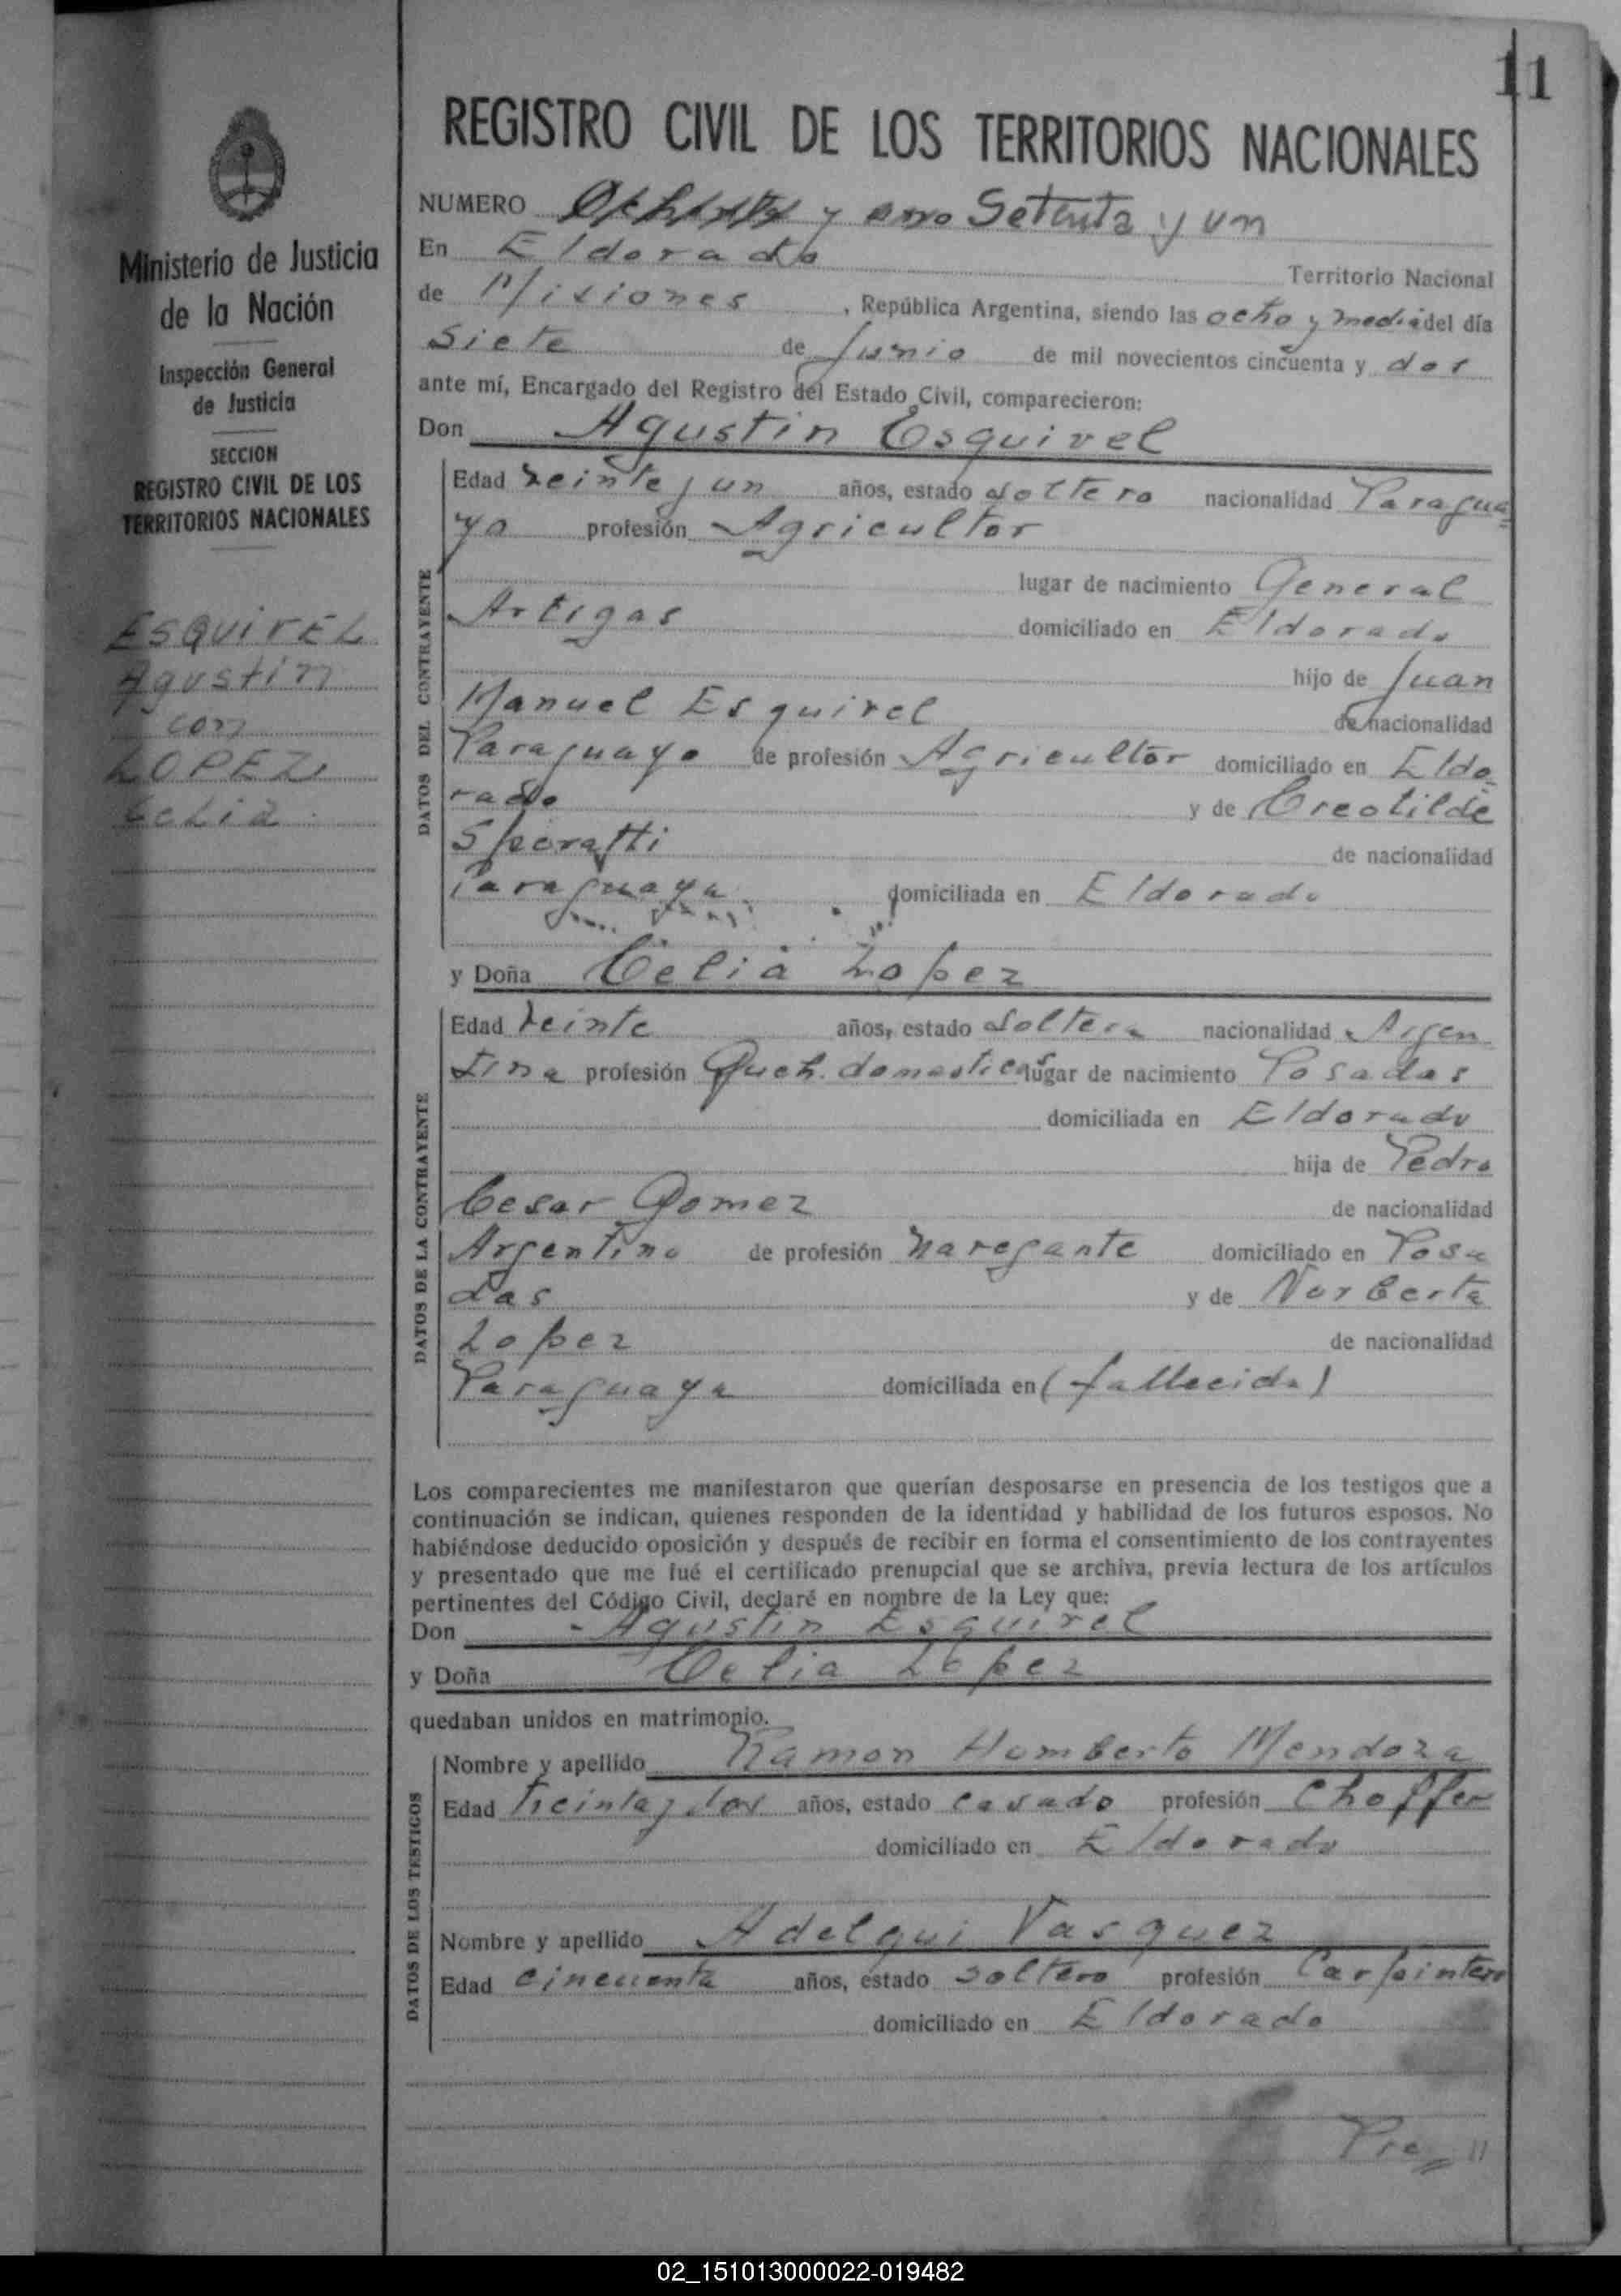 11
REGISTRO CIVIL DE LOS TERRITORIOS NACIONALES
Ministerio de Justicia
de la Nación
Inspección General
de Justicia
SECCION
REGISTRO CIVIL DE LOS
TERRITORIOS NACIONALES
ESQUIVEL
Agustin
con
LOPEZ
Celia
NUMERO y uno Setenta y un
En Eldorado Territorio Nacional
de Misiones, República Argentina, siendo las ocho y media del día
Siete de Junio de mil novecientos cincuenta y dos
ante mí, Encargado del Registro del Estado Civil, comparecieron:
Don Agustin Esquivel
DATOS DEL CONTRAYENTE
Edad Veinte y un años, estado soltero nacionalidad Paragua
yo profesión Agricultor
lugar de nacimiento General
Artigas domiciliado en Eldorado
hijo de Juan
Manuel Esquivel de nacionalidad
Paraguayo de profesión Agricultor domiciliado en Eldo
rado y de Creotilde
Speratti de nacionalidad
Paraguaya domiciliada en Eldorado
y Doña Celia Lopez
DATOS DE LA CONTRAYENTE
Edad Veinte años, estado soltera nacionalidad Argen
tina profesión Queh. domesticos lugar de nacimiento Posadas
domiciliada en Eldorado
hija de Pedro
Cesar Gomez de nacionalidad
Argentino de profesión navegante domiciliado en Posa
das y de Norberta
Lopez de nacionalidad
Paraguaya domiciliada en (fallecida)
Los comparecientes me manifestaron que querían desposarse en presencia de los testigos que a
continuación se indican, quienes responden de la identidad y habilidad de los futuros esposos. No
habiéndose deducido oposición y después de recibir en forma el consentimiento de los contrayentes
y presentado que me fué el certificado prenupcial que se archiva, previa lectura de los artículos
pertinentes del Código Civil, declaré en nombre de la Ley que:
Don Agustin Esquivel
y Doña Celia Lopez
quedaban unidos en matrimonio.
DATOS DE LOS TESTIGOS
Nombre y apellido Ramon Humberto Mendoza
Edad treinta y dos años, estado casado profesión Choffer
domiciliado en Eldorado
Nombre y apellido Adelqui Vasquez
Edad cincuenta años, estado soltero profesión Carpintero
domiciliado en Eldorado
02_151013000022-019482